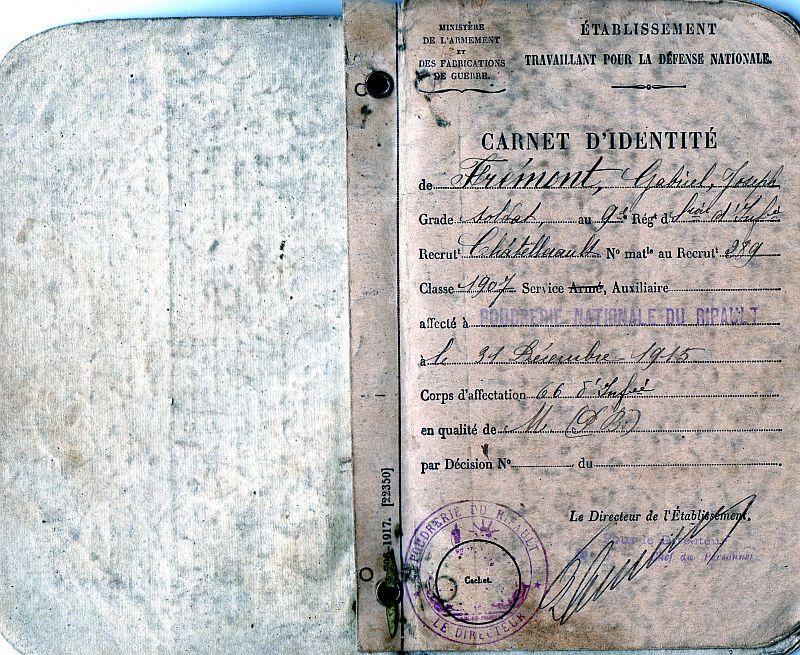 MINISTÈRE
DE L'ARMEMENT
ET
DES FABRICATIONS
DE GUERRE.
ÉTABLISSEMENT
TRAVAILLANT POUR LA DÉFENSE NATIONALE.
CARNET D'IDENTITÉ
de Frémont, Gabriel, Joseph
Grade soldat, au 9e Régt d'
Recrutt Châtellerault N° matle au Recrutt 289
Classe 1907 Service Armé, Auxiliaire
affecté à POUDRERIE NATIONALE DU RIPAULT
à le 21 Décembre 1915
Corps d'affectation 66 d'Infie
en qualité de M.
par Décision N° du
Le Directeur de l'Établissement,
Pour le Directeur
Chef du Personnel
POUDRERIE DU RIPAULT
Cachet.
LE DIRECTEUR
-1917. [22350]